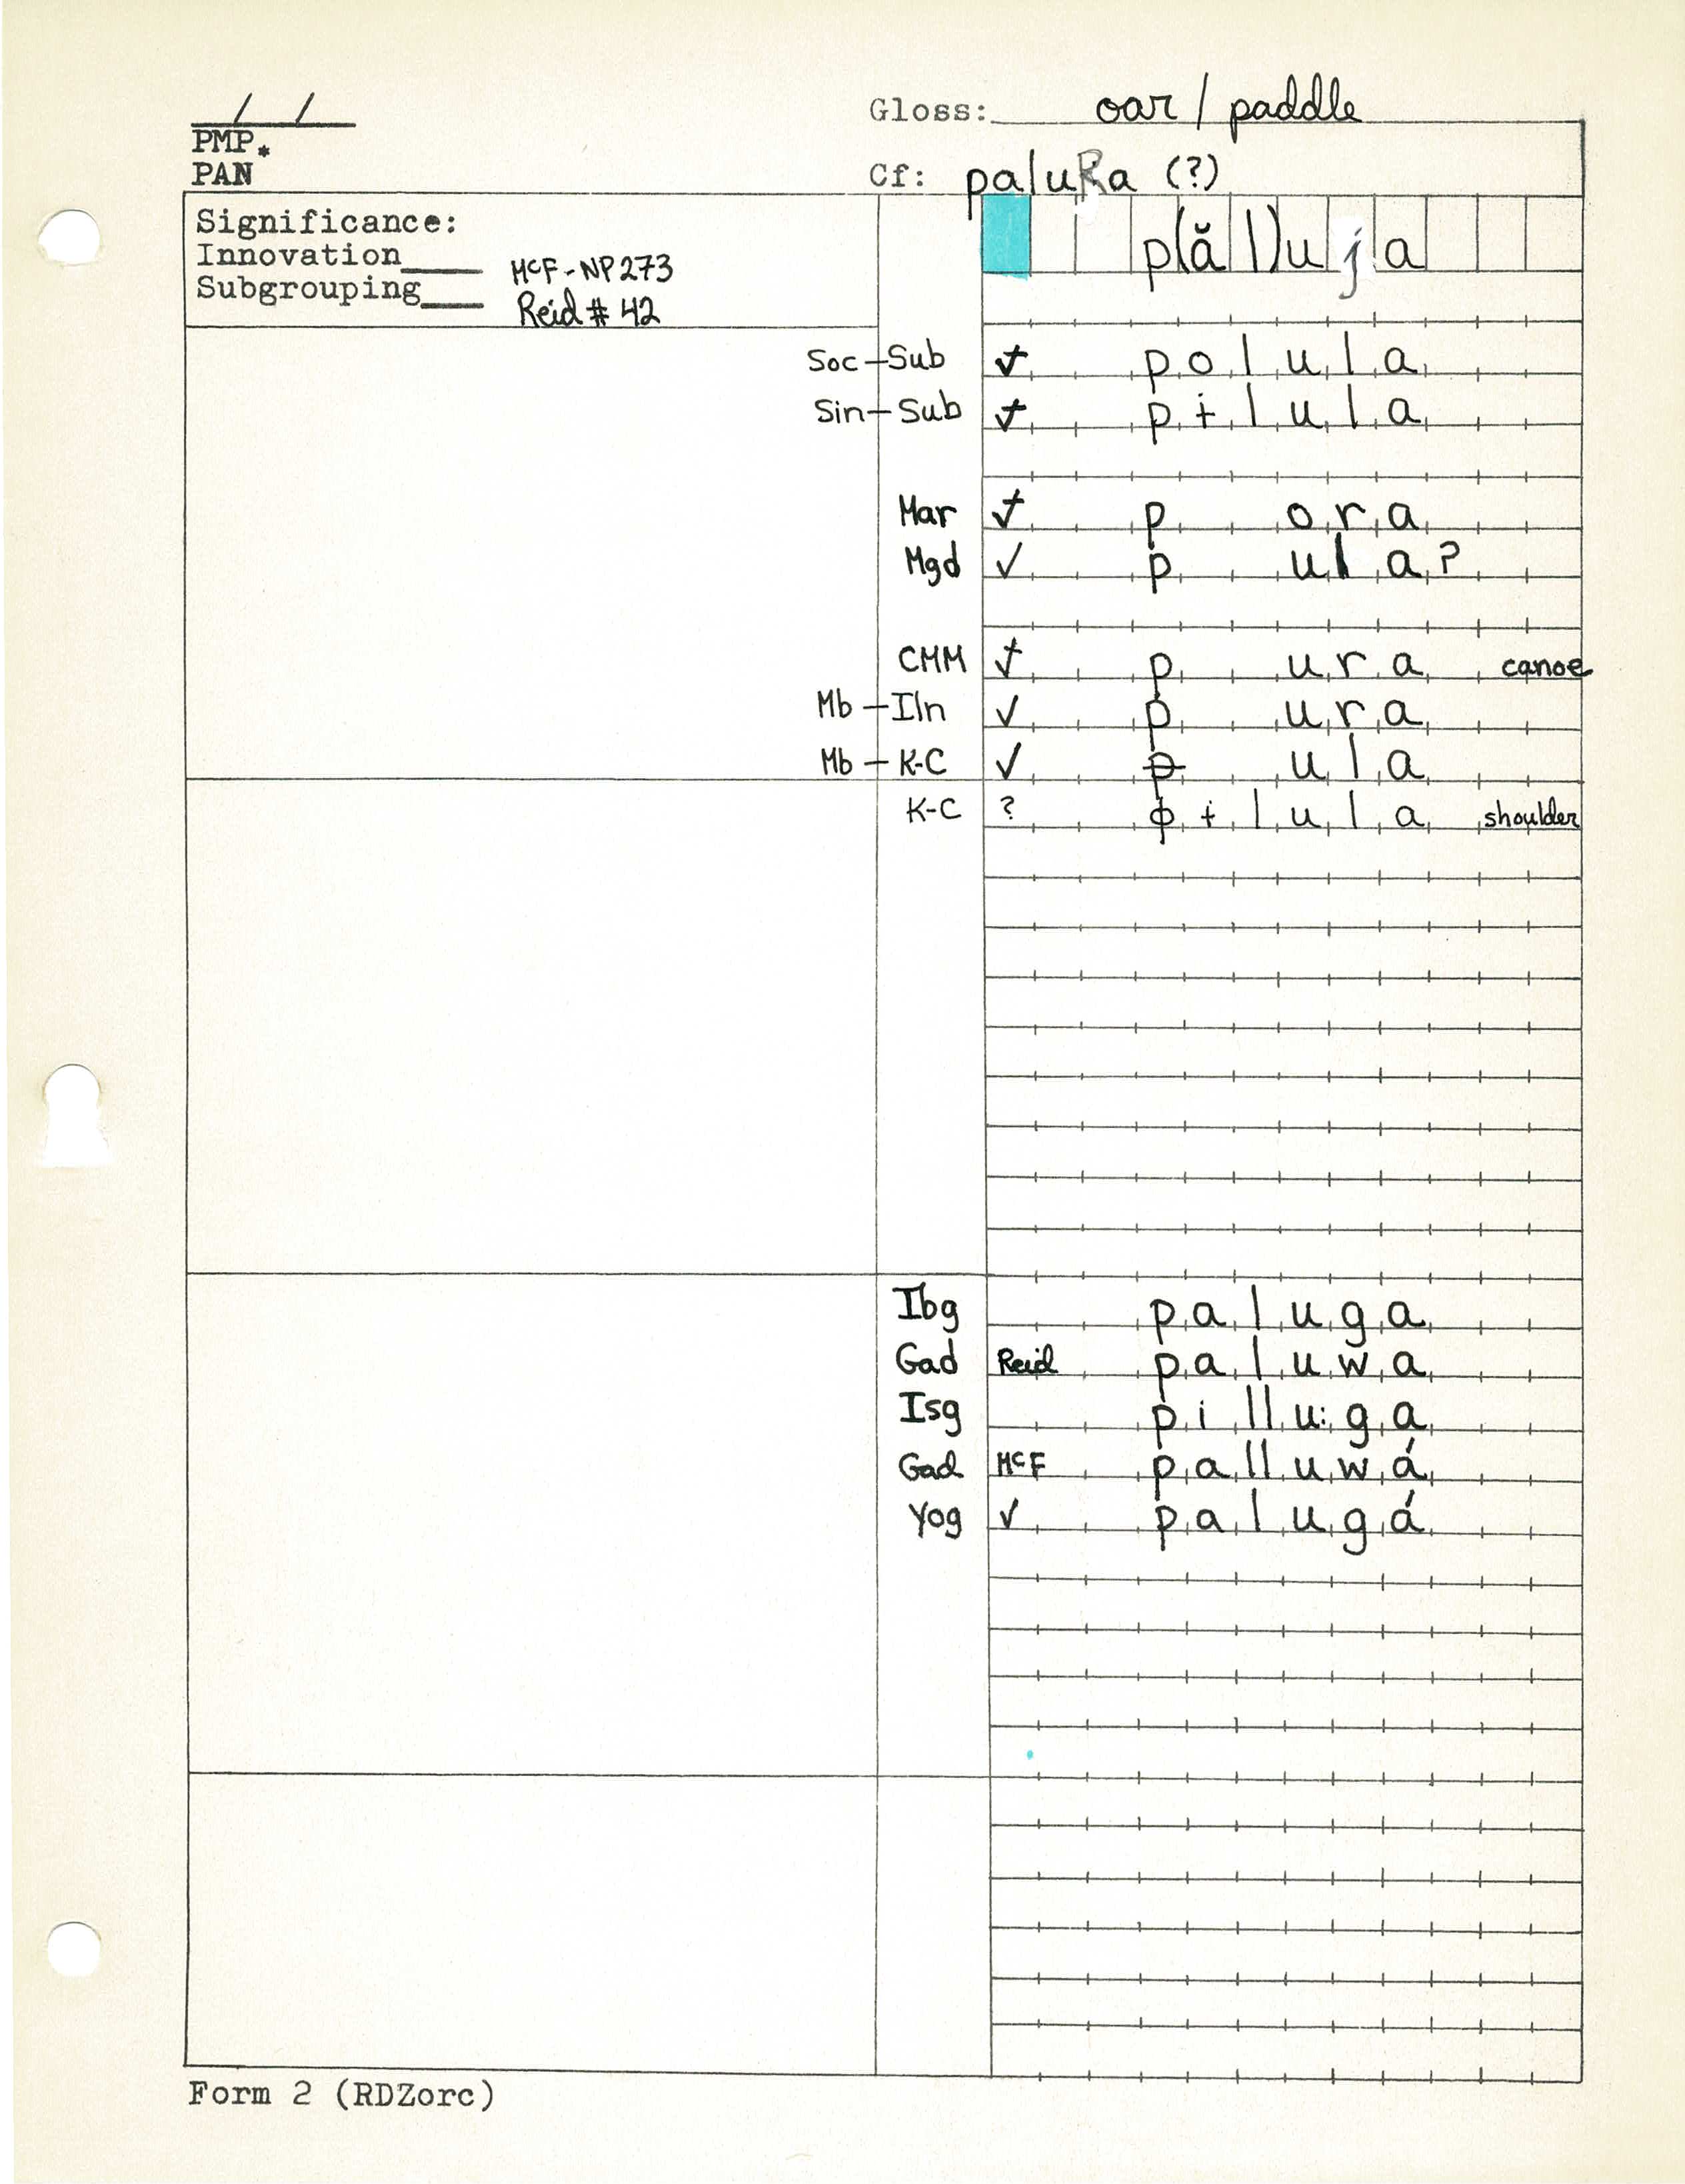 Gloss: oar / paddle
PMP*
PAN
Cf: paluRa (?)
Significance:
Innovation____
Subgrouping____
McF-NP273
Reid # 42
p(ă l)u j a
Soc-Sub polula
Sin-Sub pɨlula
Mar ✓ p ora
Mgd ✓ p ula?
CMM ✓ p ura canoe
Mb-Iln ✓ p ura
Mb-K-C ✓ p ula
K-C ? ɸɨlula shoulder
Ibg paluga
Gad Reid paluwa
Isg pillu:ga
Gad McF palluwá
Yog ✓ palugá
Form 2 (RDZorc)